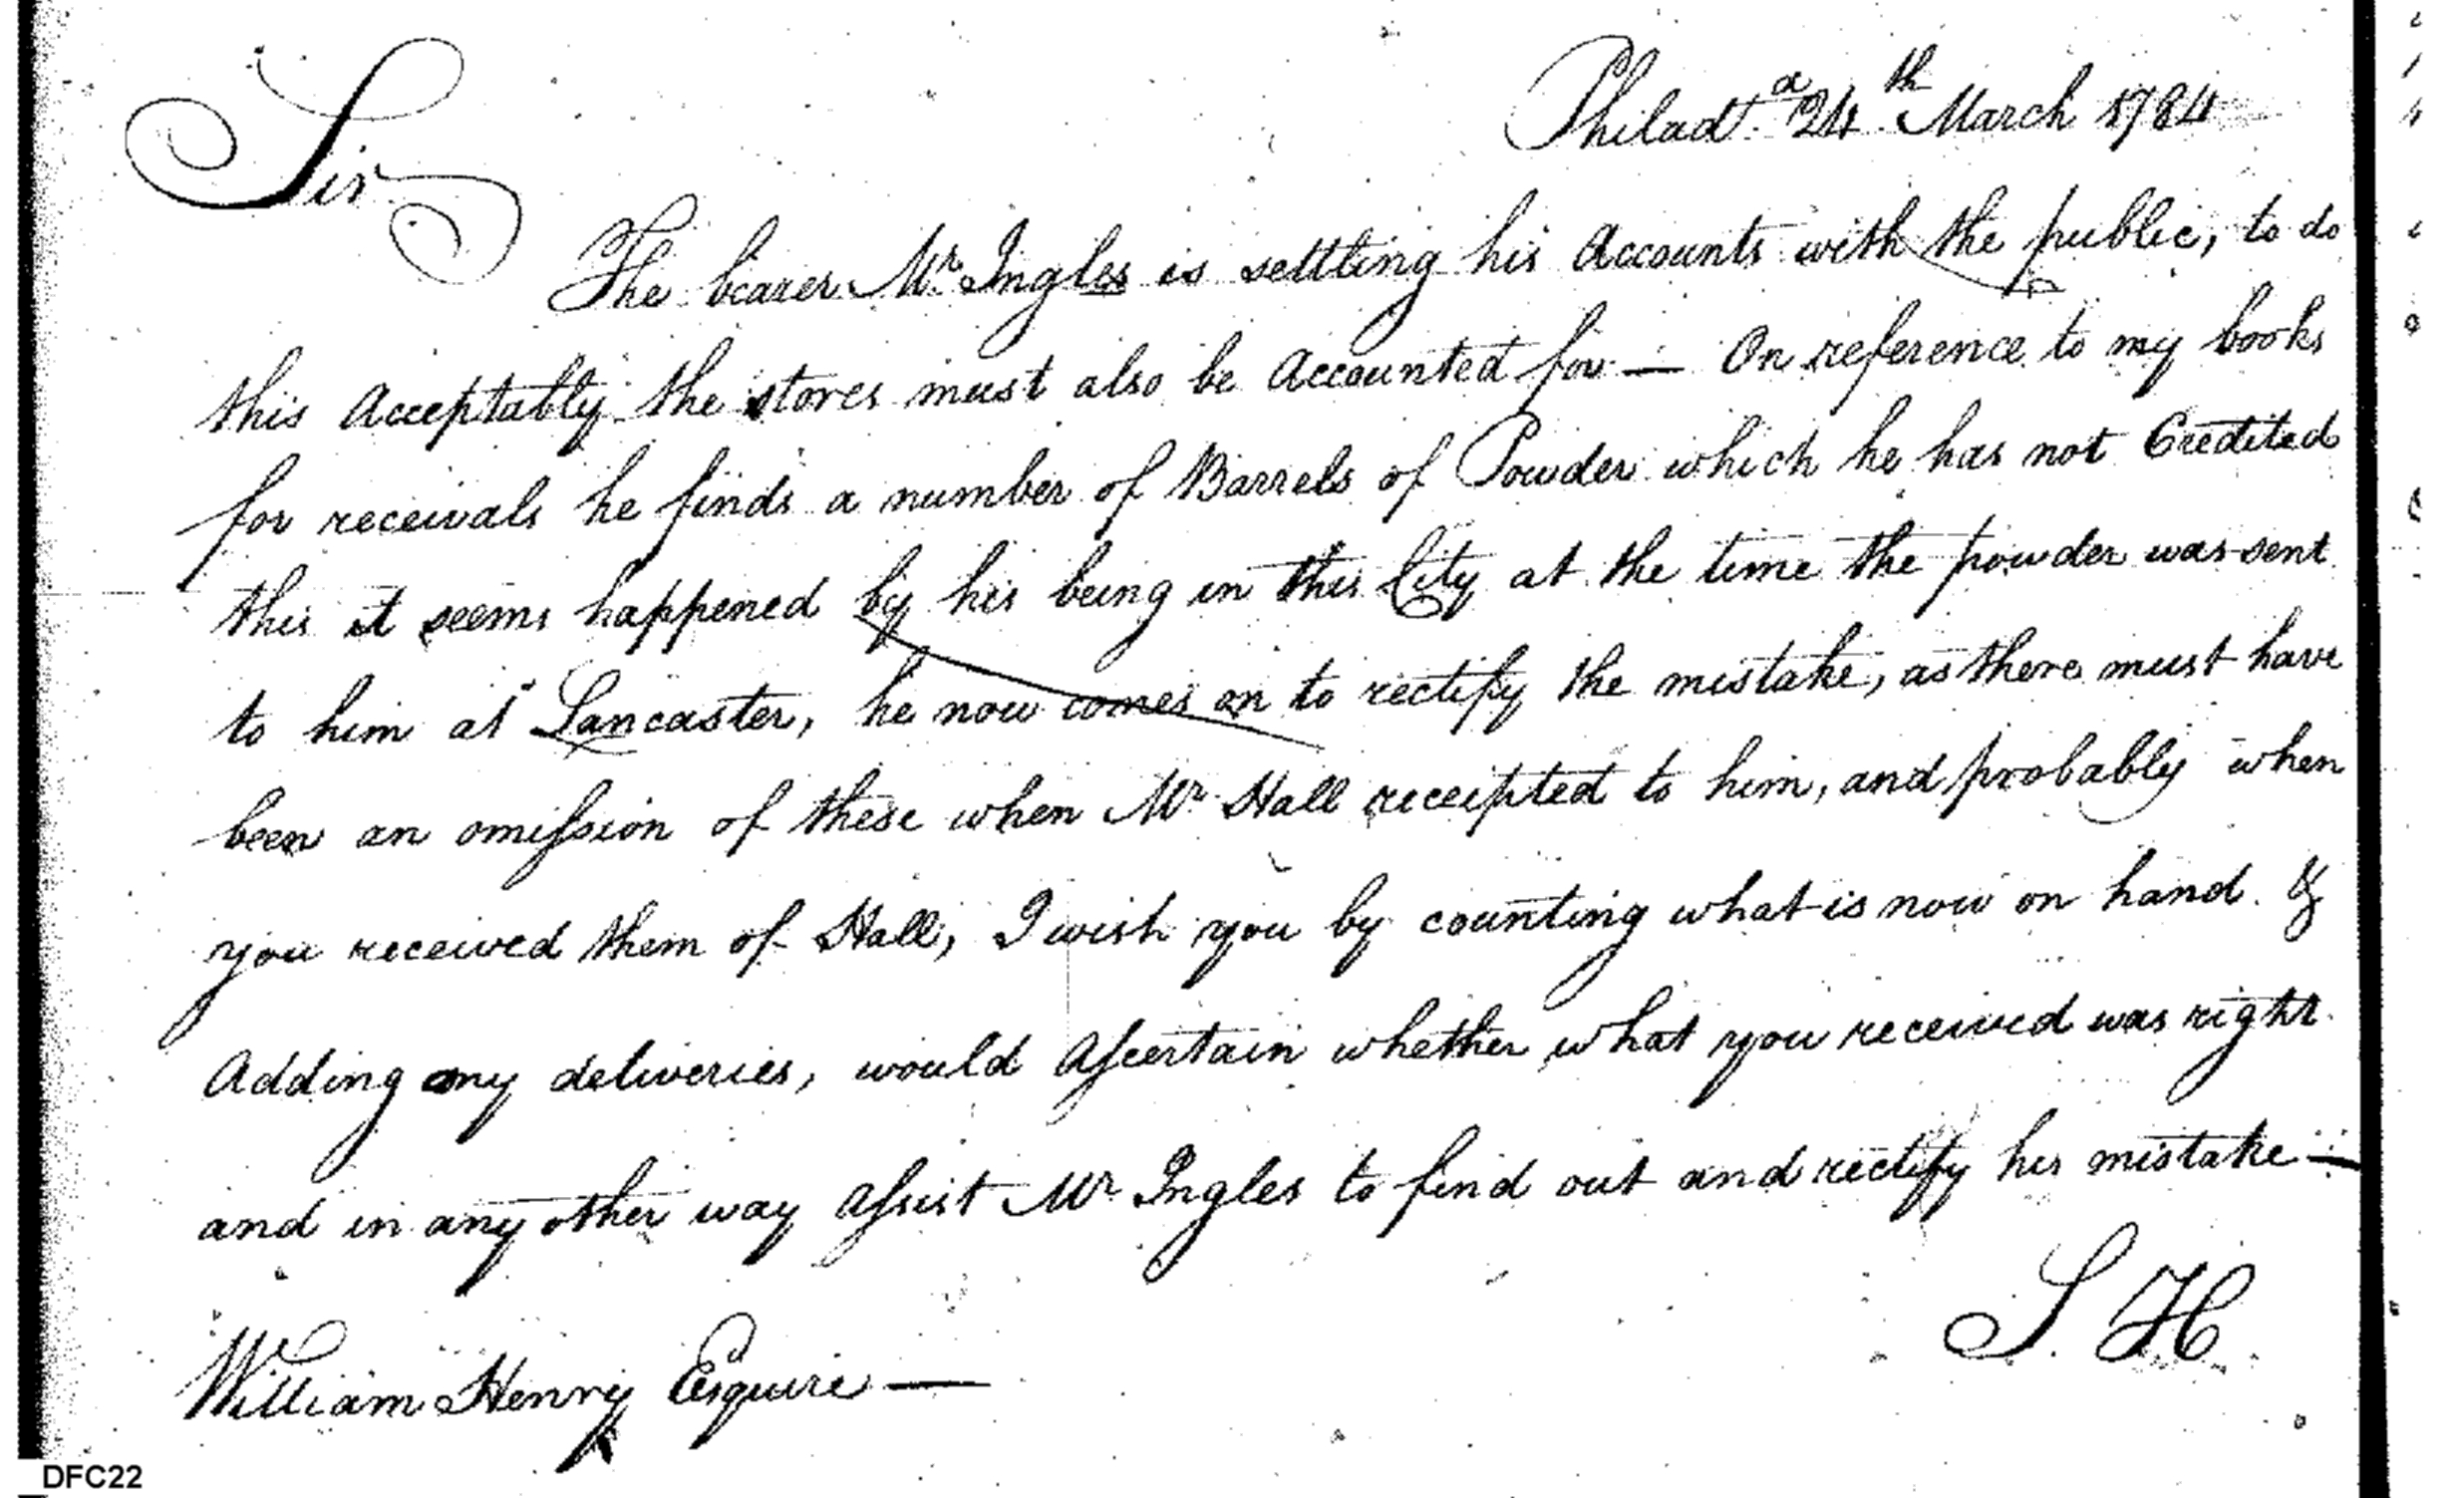 Philad.ª 24th March 1784
Sir
The bearer Mr Ingles is settling his Accounts with the public, to do
this Acceptably the stores must also be Accounted for — On reference to my books
for receivals he finds a number of Barrels of Powder which he has not Credited
this it seems happened by his being in this City at the time the powder was sent
to him at Lancaster, he now comes on to rectify the mistake, as there must have
been an omission of these when Mr Hall receipted to him, and probably when
you received them of Hall, I wish you by counting what is now on hand. &
Adding my deliveries, would Ascertain whether what you received was right
and in any other way Assist Mr Ingles to find out and rectify his mistake —
S. H.
William Henry Esquire —
DFC22